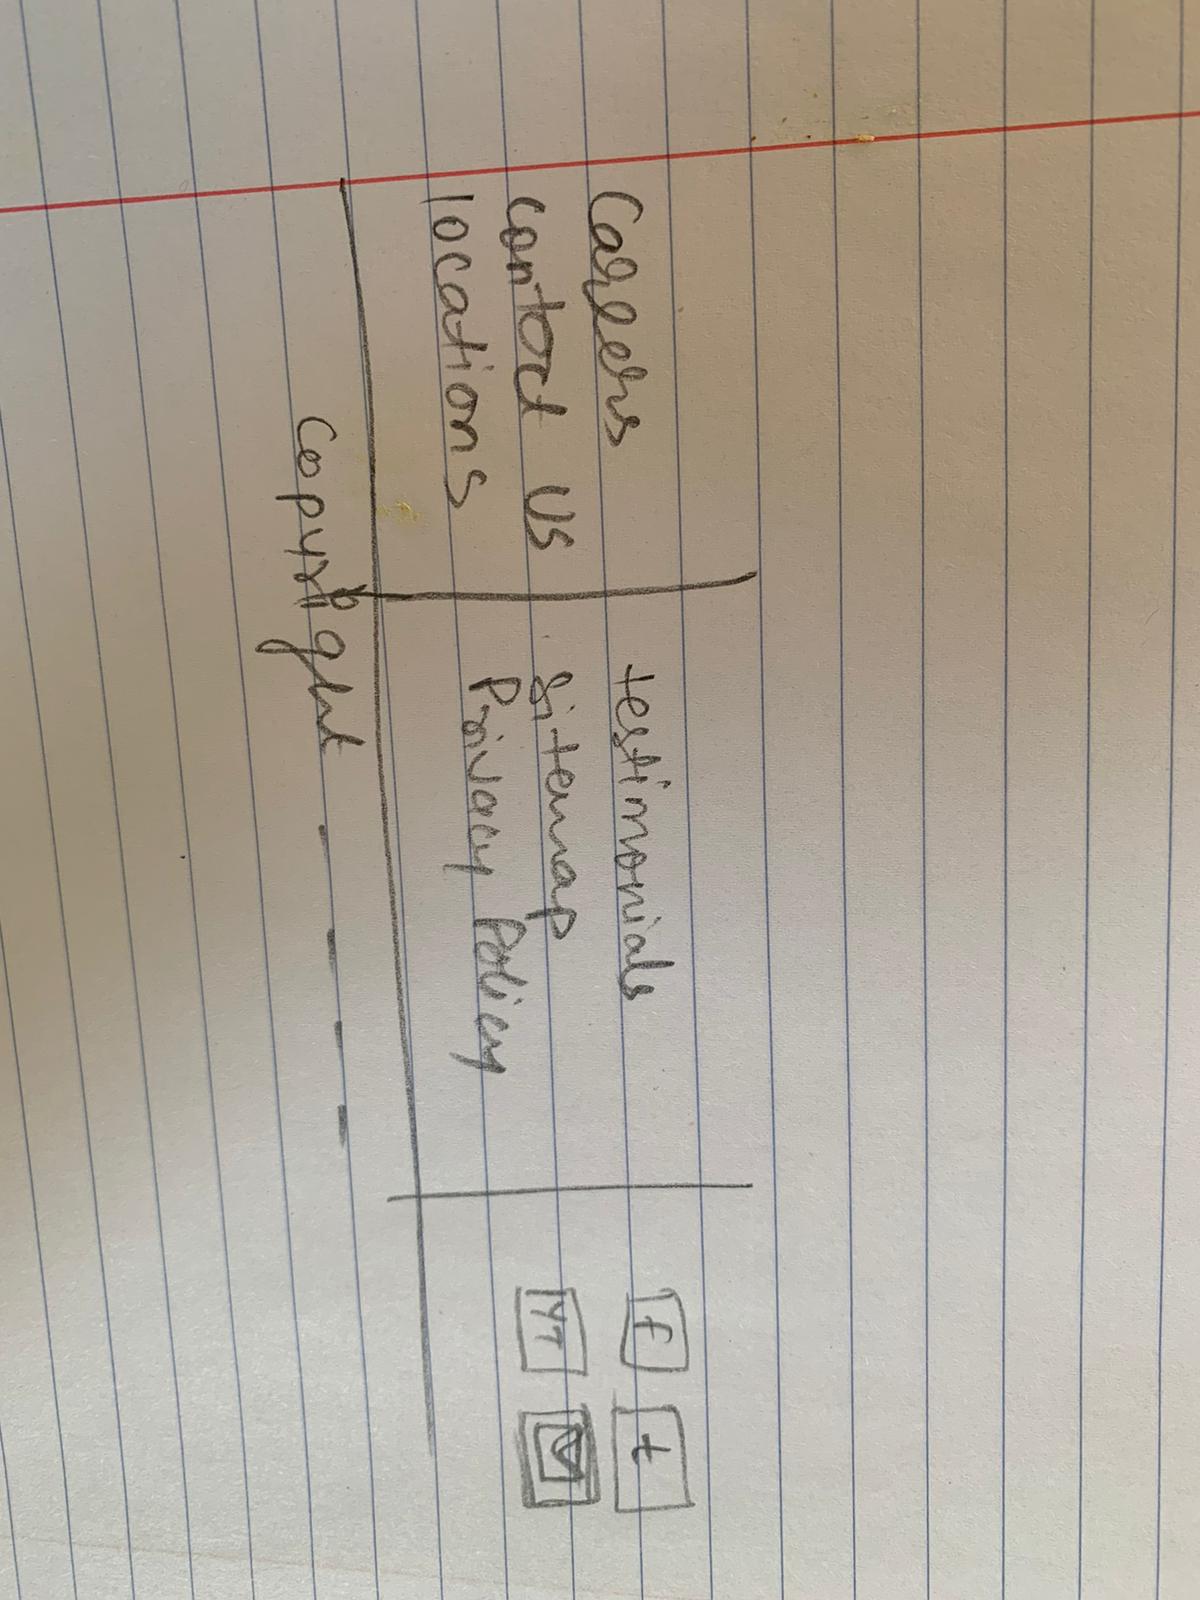 Careers
Contact Us
locations
testimonials
Sitemap
Privacy Policy
f
t
YT
Copyright